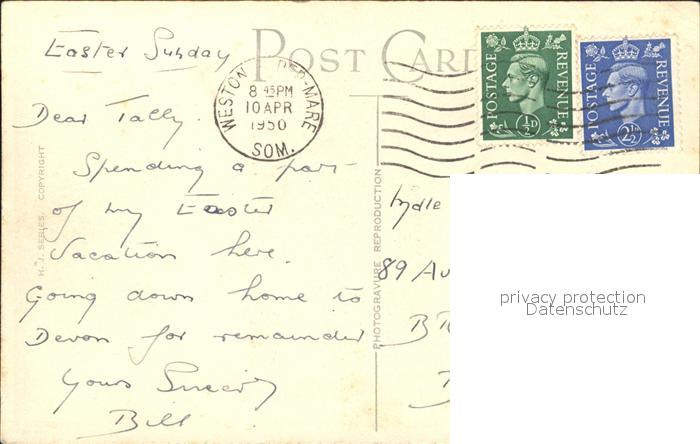 Easter Sunday
POST CARD
WESTON-SUPER-MARE
8 45 PM
10 APR
1950
SOM.
POSTAGE REVENUE
½D
POSTAGE REVENUE
2½D
Dear Tally.
Spending a part
of my Easter
Vacation here.
Going down home to
Devon for remainder
Yours Sincerely
Bill
H.J. SERIES. COPYRIGHT
PHOTOGRAVURE REPRODUCTION
89 Av
B
privacy protection
Datenschutz